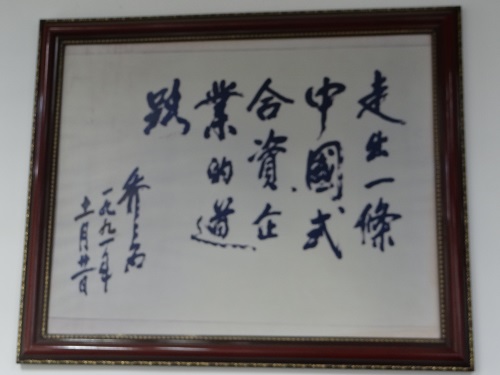 走出一條
中國式
合資企
業的道
路
一九九一年
十一月廿一日